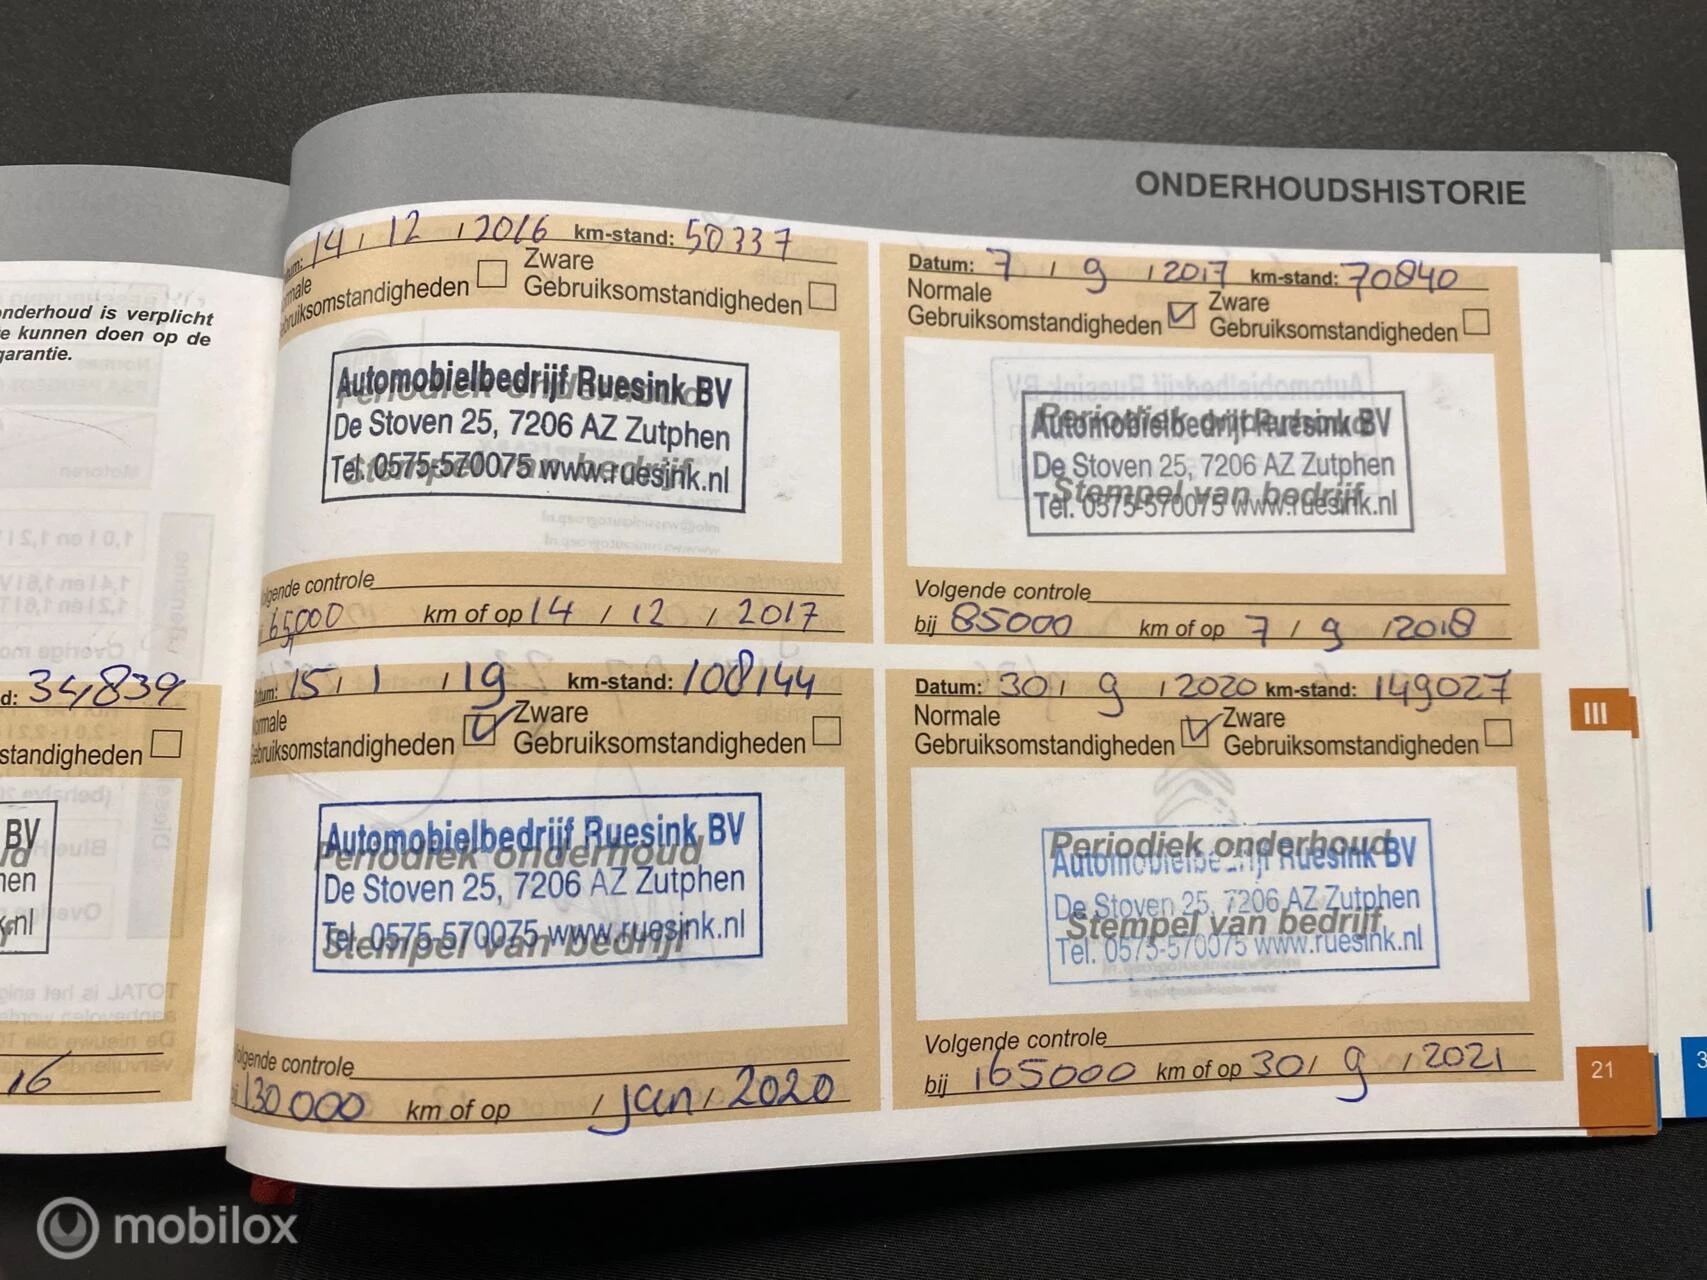 ONDERHOUDSHISTORIE
onderhoud is verplicht
te kunnen doen op de
garantie.
d: 34,839
standigheden
BV
nl
16
14 / 12 / 2016 km-stand: 50337
Gebruiksomstandigheden
Zware
Gebruiksomstandigheden
Periodiek onderhoud
Stempel van bedrijf
Automobielbedrijf Ruesink BV
De Stoven 25, 7206 AZ Zutphen
Tel. 0575-570075 www.ruesink.nl
Volgende controle
65000 km of op 14 / 12 / 2017
Datum: 7 / 9 / 2017 km-stand: 70840
Normale
Gebruiksomstandigheden
Zware
Gebruiksomstandigheden
Periodiek onderhoud
Stempel van bedrijf
Automobielbedrijf Ruesink BV
De Stoven 25, 7206 AZ Zutphen
Tel. 0575-570075 www.ruesink.nl
Volgende controle
bij 85000 km of op 7 / 9 / 2018
Datum: 15 / 1 / 19 km-stand: 108144
Normale
Gebruiksomstandigheden
Zware
Gebruiksomstandigheden
Periodiek onderhoud
Stempel van bedrijf
Automobielbedrijf Ruesink BV
De Stoven 25, 7206 AZ Zutphen
Tel. 0575-570075 www.ruesink.nl
Volgende controle
130000 km of op / jan / 2020
Datum: 30 / 9 / 2020 km-stand: 149027
Normale
Gebruiksomstandigheden
Zware
Gebruiksomstandigheden
Periodiek onderhoud
Stempel van bedrijf
Automobielbedrijf Ruesink BV
De Stoven 25, 7206 AZ Zutphen
Tel. 0575-570075 www.ruesink.nl
Volgende controle
bij 165000 km of op 30 / 9 / 2021
III
21
3
mobilox